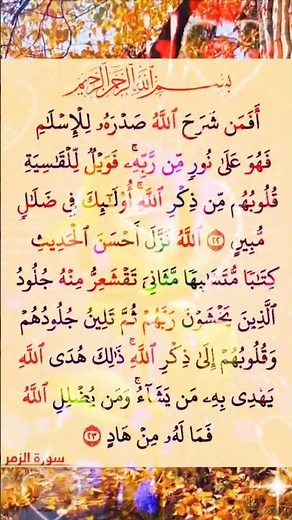 بسم الله الرحمن الرحيم
أَفَمَن شَرَحَ ٱللَّهُ صَدْرَهُۥ لِلْإِسْلَٰمِ
فَهُوَ عَلَىٰ نُورٍ مِّن رَّبِّهِۦۚ فَوَيْلٌ لِّلْقَٰسِيَةِ
قُلُوبُهُم مِّن ذِكْرِ ٱللَّهِۚ أُو۟لَٰٓئِكَ فِى ضَلَٰلٍ
مُّبِينٍ ٢٢ ٱللَّهُ نَزَّلَ أَحْسَنَ ٱلْحَدِيثِ
كِتَٰبًا مُّتَشَٰبِهًا مَّثَانِىَ تَقْشَعِرُّ مِنْهُ جُلُودُ
ٱلَّذِينَ يَخْشَوْنَ رَبَّهُمْ ثُمَّ تَلِينُ جُلُودُهُمْ
وَقُلُوبُهُمْ إِلَىٰ ذِكْرِ ٱللَّهِۚ ذَٰلِكَ هُدَى ٱللَّهِ
يَهْدِى بِهِۦ مَن يَشَآءُۚ وَمَن يُضْلِلِ ٱللَّهُ
فَمَا لَهُۥ مِنْ هَادٍ ٢٣
سورة الزمر